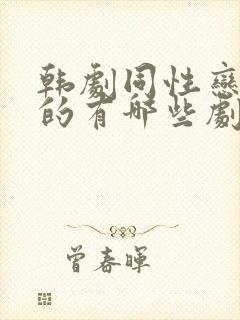 韩劇同性戀
的有哪些劇
曾春暉